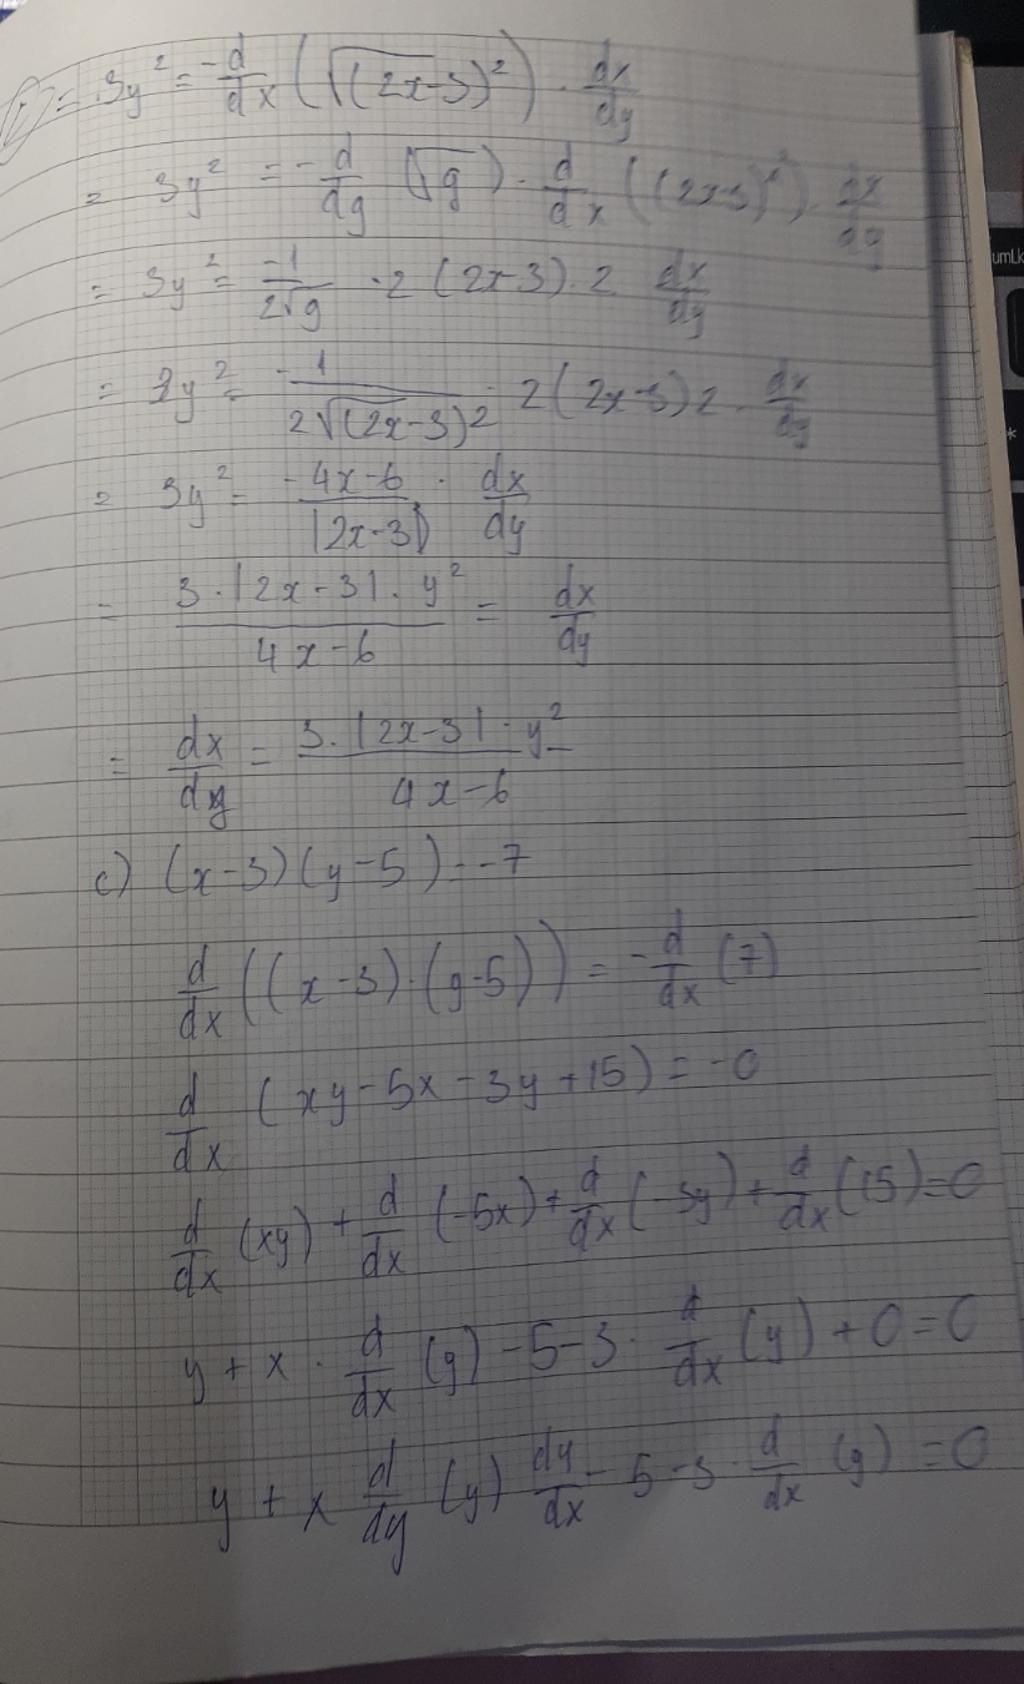 = 3y² = -d/dx (√((2x-3)²)) · dx/dy
= 3y² = -d/dg (√g) · d/dx ((2x-3)²) · dx/dy
= 3y² = -1/2√g · 2(2x-3)·2 dx/dy
= 3y² = -1/2√((2x-3)²) · 2(2x-3)2 · dx/dy
= 3y² = -4x-6/|2x-3| · dx/dy
= 3·|2x-3|·y²/4x-6 = dx/dy
= dx/dy = 3·|2x-3|·y²/4x-6
c) (x-3)(y-5)=-7
d/dx ((x-3)·(y-5)) = -d/dx (7)
d/dx (xy-5x-3y+15) = -0
d/dx (xy) + d/dx (-5x) + d/dx (-3y) + d/dx (15)=0
y + x · d/dx (y) -5-3 · d/dx (y) +0=0
y + x d/dy (y) dy/dx - 5-3 · d/dx (y) =0
umLk
*